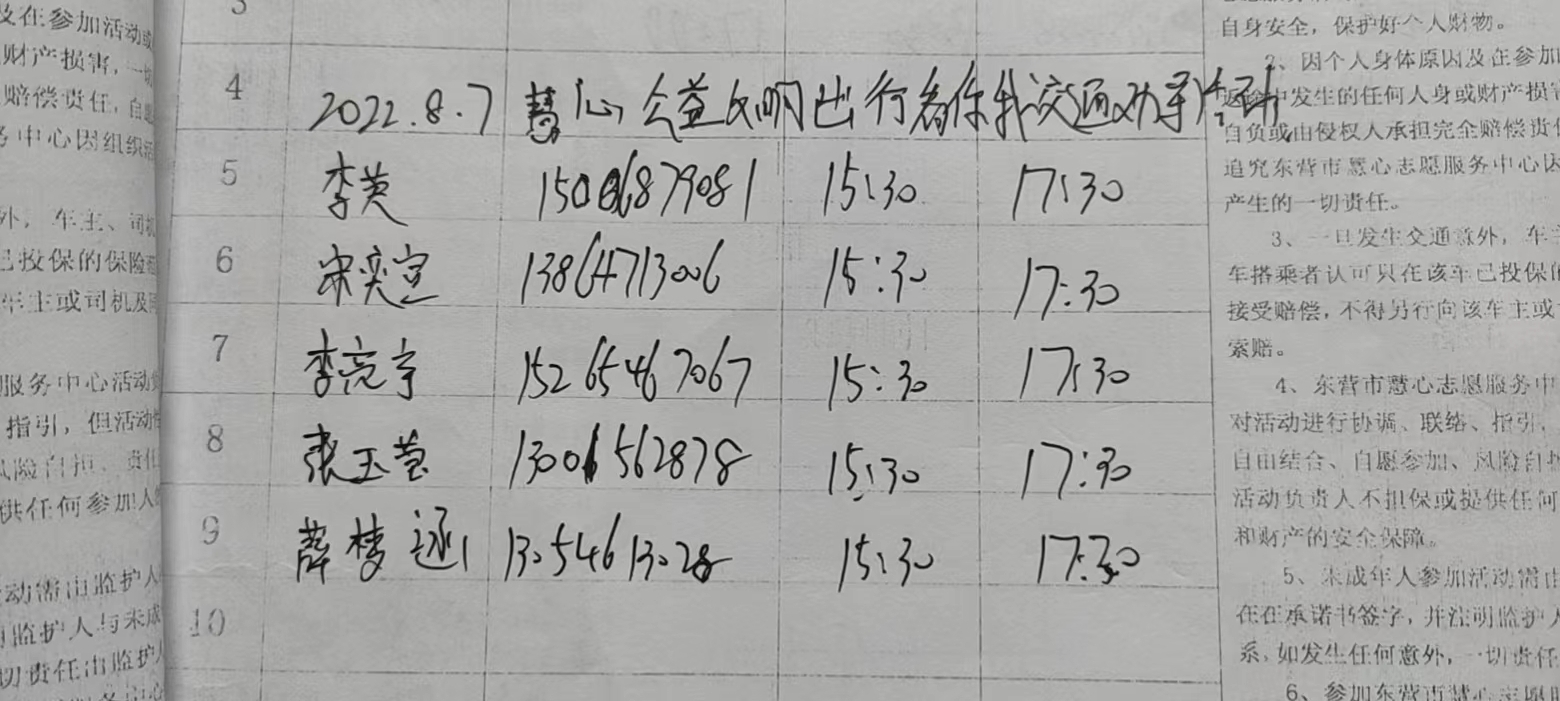 及在参加活动或
财产损害,一切
赔偿责任,自愿
务中心因组织活
外,车主、司机
已投保的保险
车主或司机及
服务中心活动
指引,但活动
风险自担、责任
供任何参加人
动需由监护人
监护人与未成
切责任由监护
3
4 2022.8.7 慧心公益文明出行看你我交通劝导活动
5 李英 15006879081 15:30 17:30
6 宋奕萱 13864713006 15:30 17:30
7 李亮宇 15265467067 15:30 17:30
8 张玉莹 13001562878 15:30 17:30
9 薛梦 13054613028 15:30 17:30
10
自身安全,保护好个人财物。
2、因个人身体原因及在参加
返途中发生的任何人身或财产损害
自负或由侵权人承担完全赔偿责任
追究东营市慧心志愿服务中心因
产生的一切责任。
3、一旦发生交通意外,车主
车搭乘者认可只在该车已投保的
接受赔偿,不得另行向该车主或
索赔。
4、东营市慧心志愿服务中
对活动进行协调、联络、指引,
自由结合、自愿参加、风险自担
活动负责人不担保或提供任何
和财产的安全保障。
5、未成年人参加活动需由
在在承诺书签字,并注明监护人
系,如发生任何意外,一切责任
6、参加东营市慧心志愿